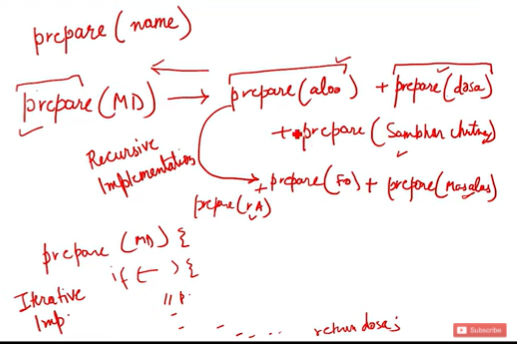 prepare(name)
prepare(MD) → prepare(aloo) + prepare(dosa)
+ prepare(Sambhar chutney)
Recursive
Implementation
prepare(rA) + prepare(FO) + prepare(Masalas)
prepare (MD) {
if (—) {
Iterative
Imp.
return dosa;
Subscribe